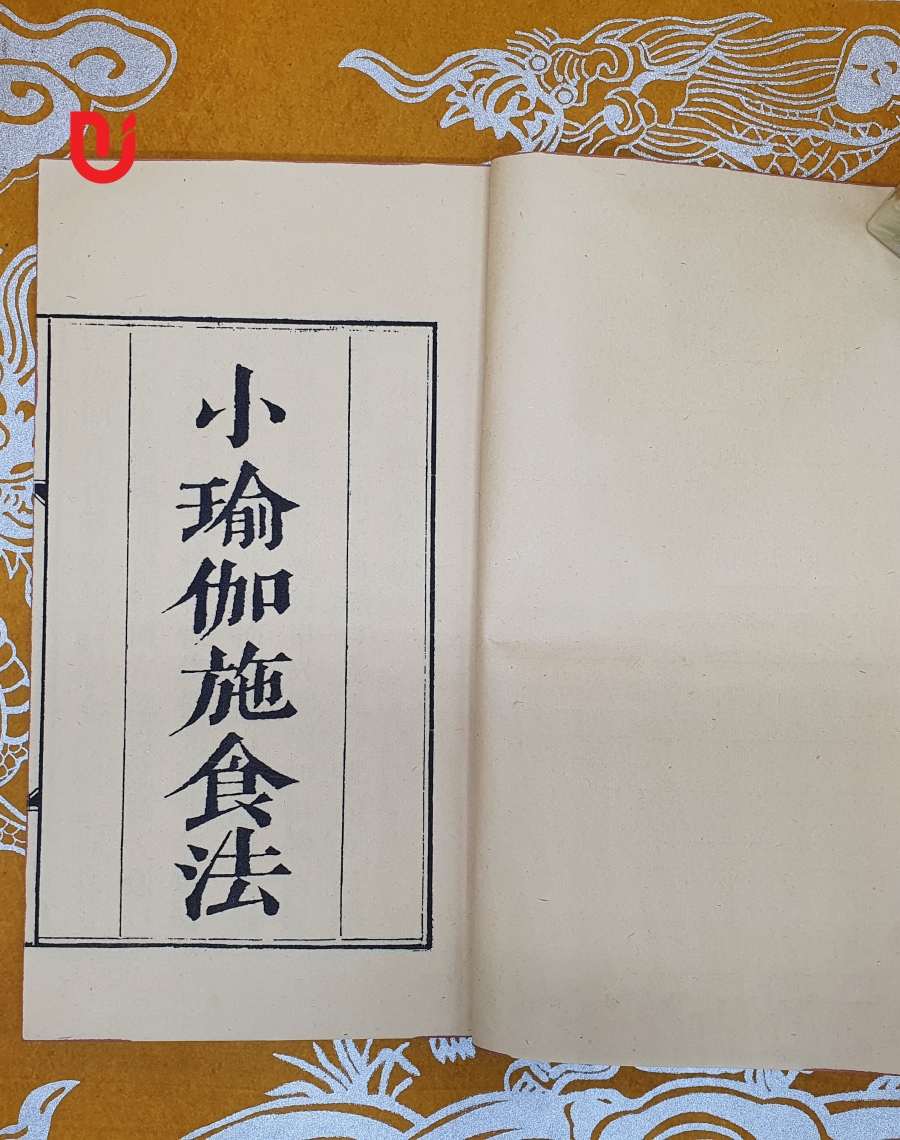 小瑜伽施食法